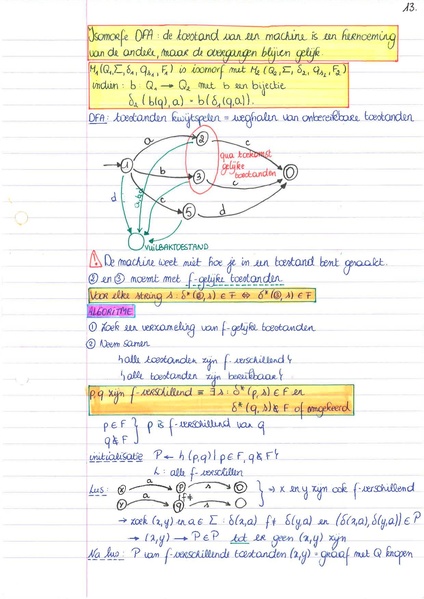 13.
Isomorfe DFA: de toestand van een machine is een hernoeming
van de andere, maar de overgangen blijven gelijk.
M₁(Q₁,Σ,δ₁,qs₁,F₁) is isomorf met M₂(Q₂,Σ,δ₂,qs₂,F₂)
indien: b: Q₁ → Q₂ met b een bijectie
δ₂(b(q),a) = b(δ₁(q,a)).
DFA: toestanden kwijtspelen = weghalen van onbereikbare toestanden
a 2 c
qua toekomst
gelijke
toestanden
1 b 3 c
d c
5 d
VUILBAKTOESTAND
! De machine weet niet hoe je in een toestand bent geraakt.
② en ③ noemt met f-gelijke toestanden
Voor elke string s: δ*(②,s) ∈ F ⇔ δ*(③,s) ∈ F
ALGORITME
① Zoek een verzameling van f-gelijke toestanden
② Neem samen
↳ alle toestanden zijn f-verschillend
↳ alle toestanden zijn bereikbaar
p,q zijn f-verschillend ≡ ∃ s: δ*(p,s) ∈ F en
δ*(q,s) ∉ F of omgekeerd
p ∈ F
q ∉ F } p is f-verschillend van q
initialisatie P ← {(p,q) | p ∈ F, q ∉ F}
L: alle f-verschillen
Lus: x a p s
f≠
y a q s } → x en y zijn ook f-verschillend
→ zoek (x,y) en a ∈ Σ: δ(x,a) f≠ δ(y,a) en (δ(x,a),δ(y,a)) ∈ P
→ (x,y) → P ∈ P tot er geen (x,y) zijn
Na lus: P van f-verschillende toestanden (x,y) = graaf met Q knopen